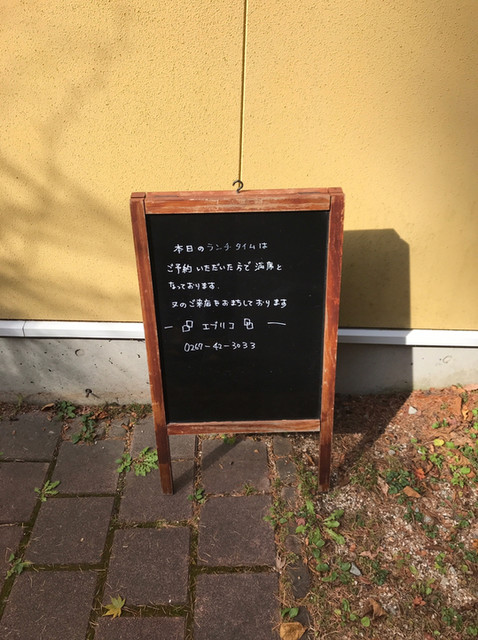 本日のランチタイムは
ご予約いただいた方で満席と
なっております。
又のご来店をおまちしております
エブリコ
0267-42-3033